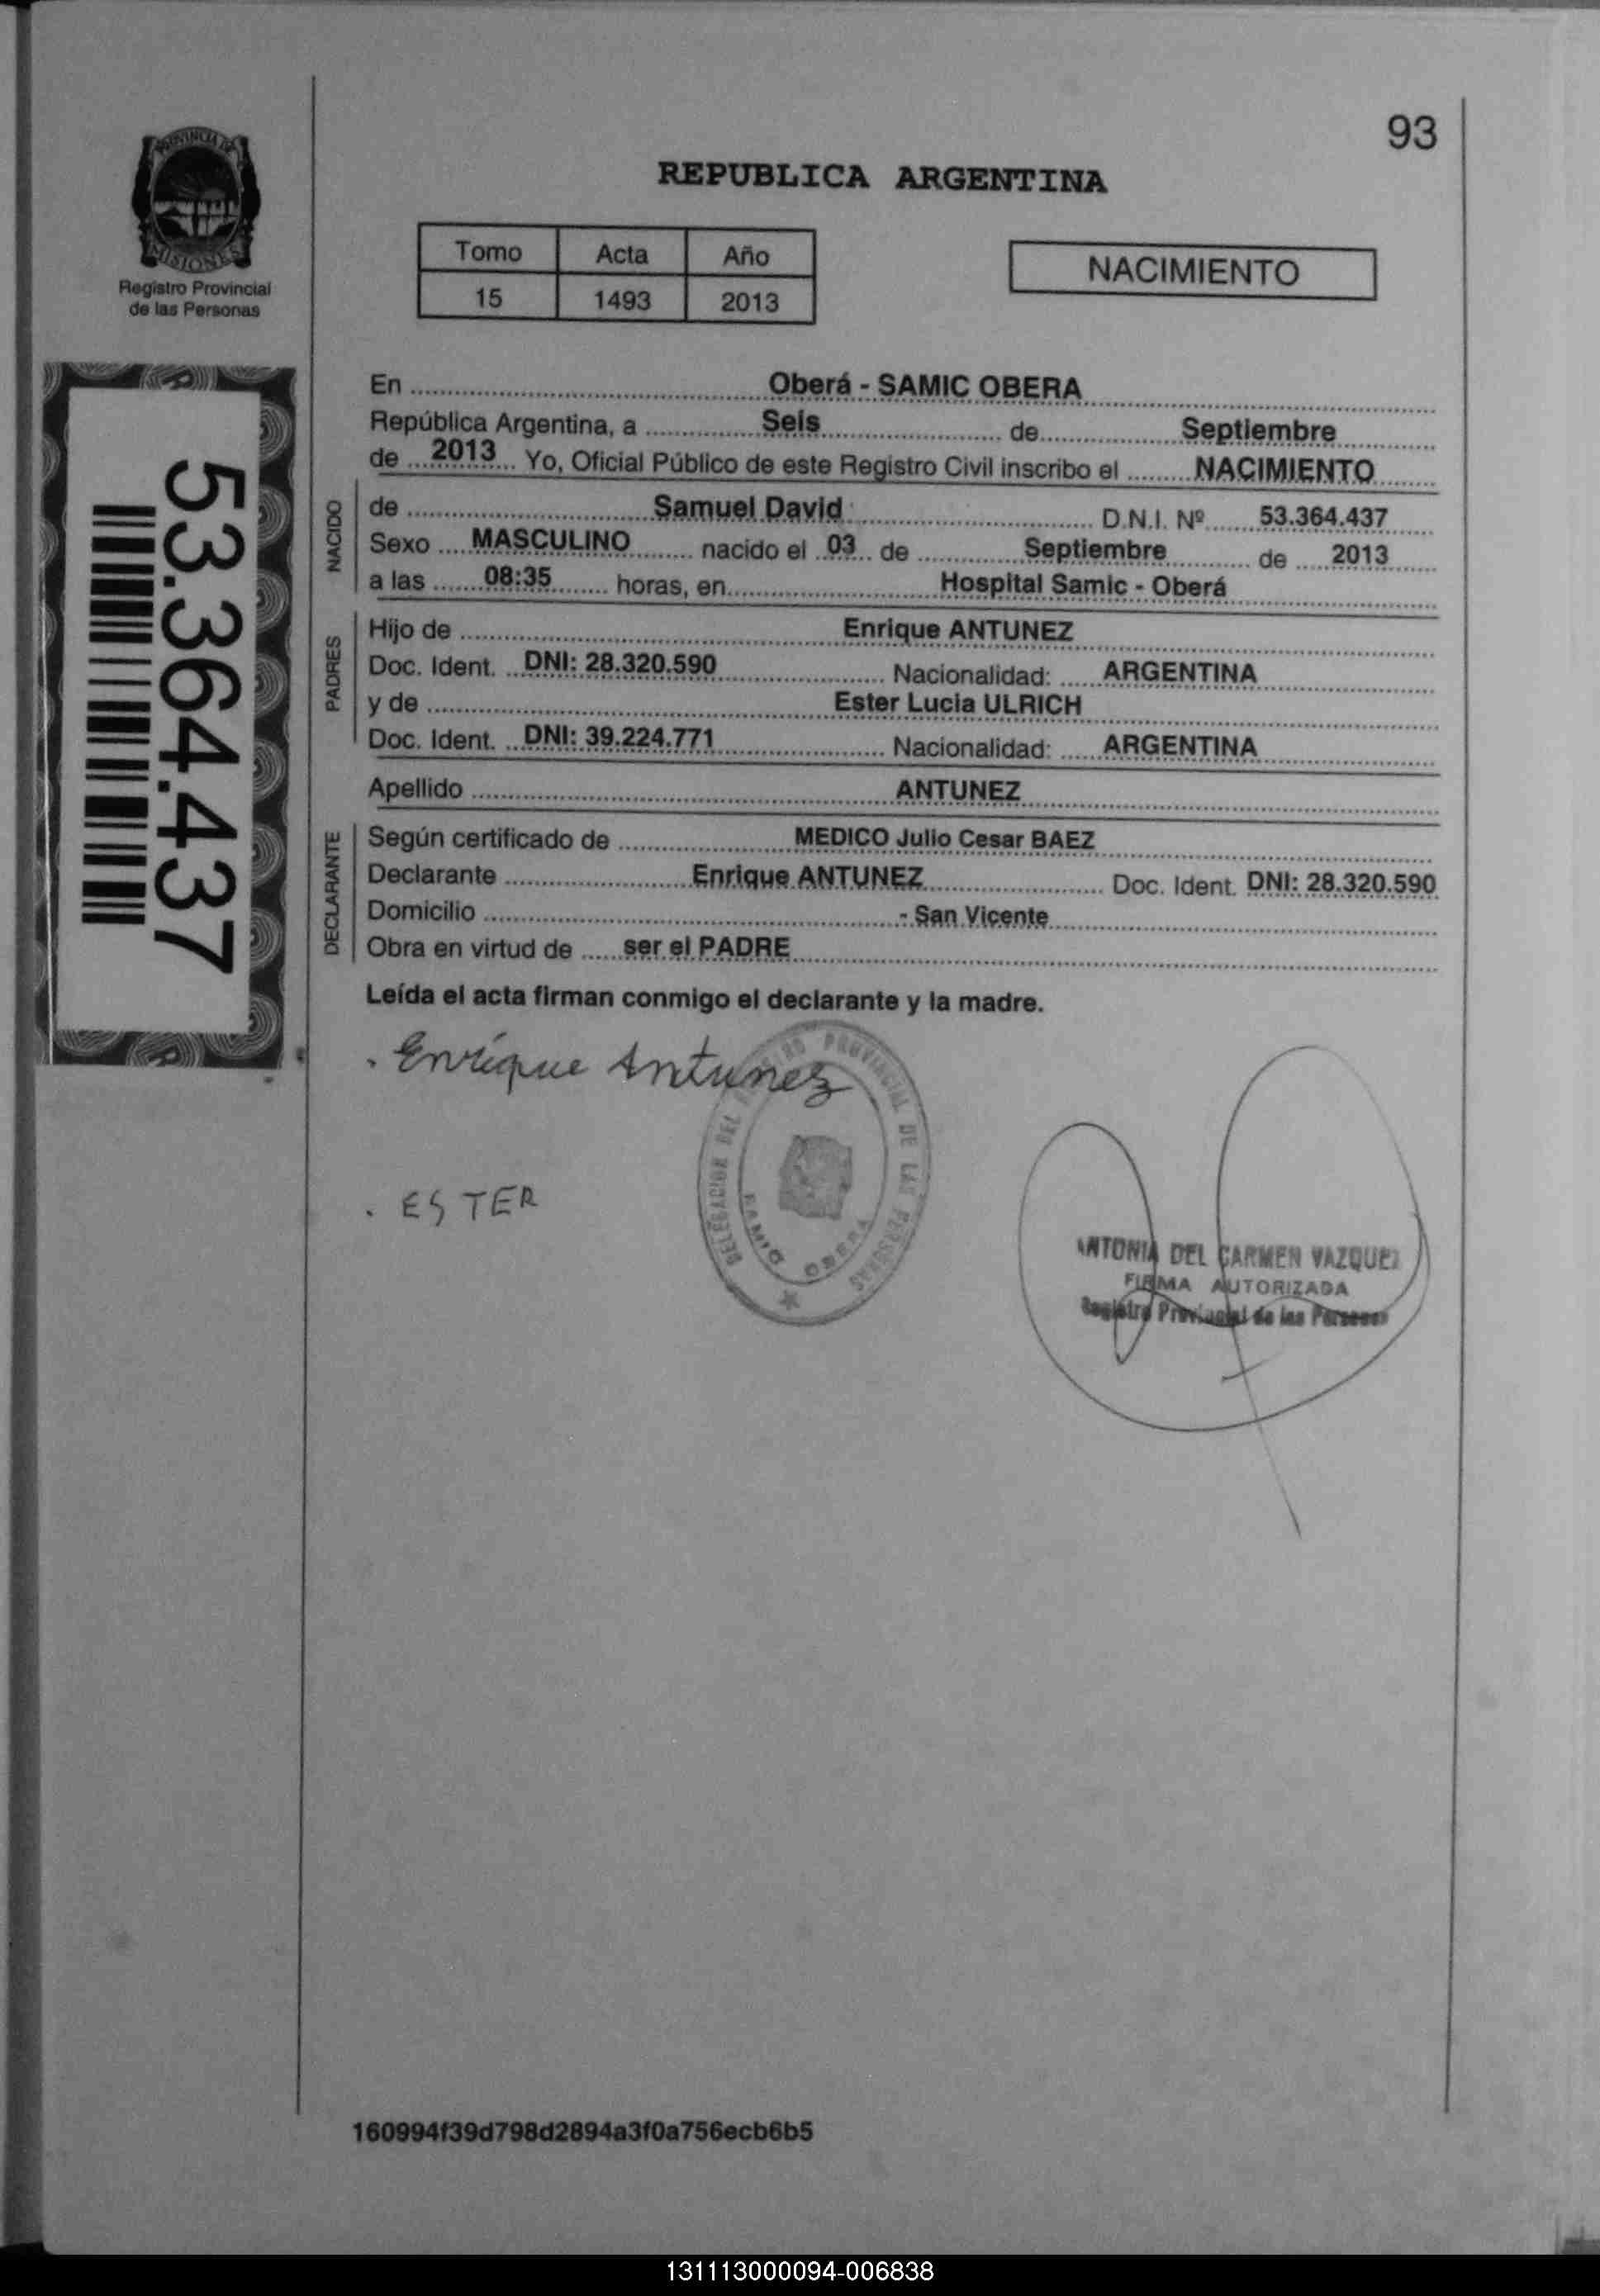 93
PROVINCIA DE
MISIONES
Registro Provincial
de las Personas
REPUBLICA ARGENTINA
Tomo Acta Año
15 1493 2013
NACIMIENTO
53.364.437
En Oberá - SAMIC OBERA
República Argentina, a Seis de Septiembre
de 2013 Yo, Oficial Público de este Registro Civil inscribo el NACIMIENTO
NACIDO
de Samuel David D.N.I. Nº 53.364.437
Sexo MASCULINO nacido el 03 de Septiembre de 2013
a las 08:35 horas, en Hospital Samic - Oberá
PADRES
Hijo de Enrique ANTUNEZ
Doc. Ident. DNI: 28.320.590 Nacionalidad: ARGENTINA
y de Ester Lucia ULRICH
Doc. Ident. DNI: 39.224.771 Nacionalidad: ARGENTINA
Apellido ANTUNEZ
DECLARANTE
Según certificado de MEDICO Julio Cesar BAEZ
Declarante Enrique ANTUNEZ Doc. Ident. DNI: 28.320.590
Domicilio - San Vicente
Obra en virtud de ser el PADRE
Leída el acta firman conmigo el declarante y la madre.
Enrique Antunez
DELEGACION DEL REGISTRO PROVINCIAL DE LAS PERSONAS
SAMIC OBERA
ESTER
ANTONIA DEL CARMEN VAZQUEZ
FIRMA AUTORIZADA
Registro Provincial de las Personas
160994f39d798d2894a3f0a756ecb6b5
131113000094-006838